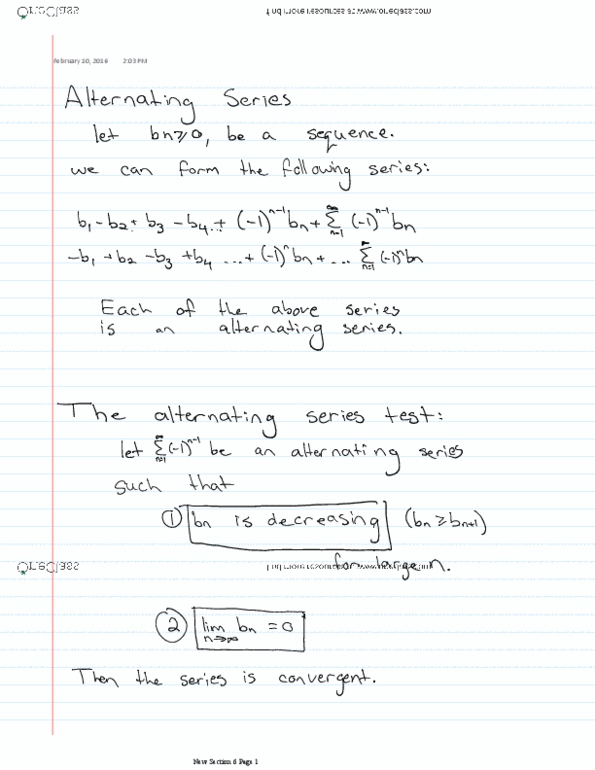 OneClass
Find more resources at www.oneclass.com
February 10, 2016 2:03 PM
Alternating Series
let bn≥0, be a sequence.
we can form the following series:
b₁-b₂+b₃-b₄..+(-1)ⁿ⁻¹bn+∑ₙ₌₁^∞(-1)ⁿ⁻¹bn
-b₁+b₂-b₃+b₄...+(-1)ⁿbn+...∑ₙ₌₁^∞(-1)ⁿbn
Each of the above series
is an alternating series.
The alternating series test:
let ∑ₙ₌₁^∞(-1)ⁿ⁻¹ be an alternating series
such that
① bn is decreasing (bn≥bn+1)
for large n.
OneClass
Find more resources at www.oneclass.com
② lim n→∞ bn = 0
Then the series is convergent.
New Section 6 Page 1